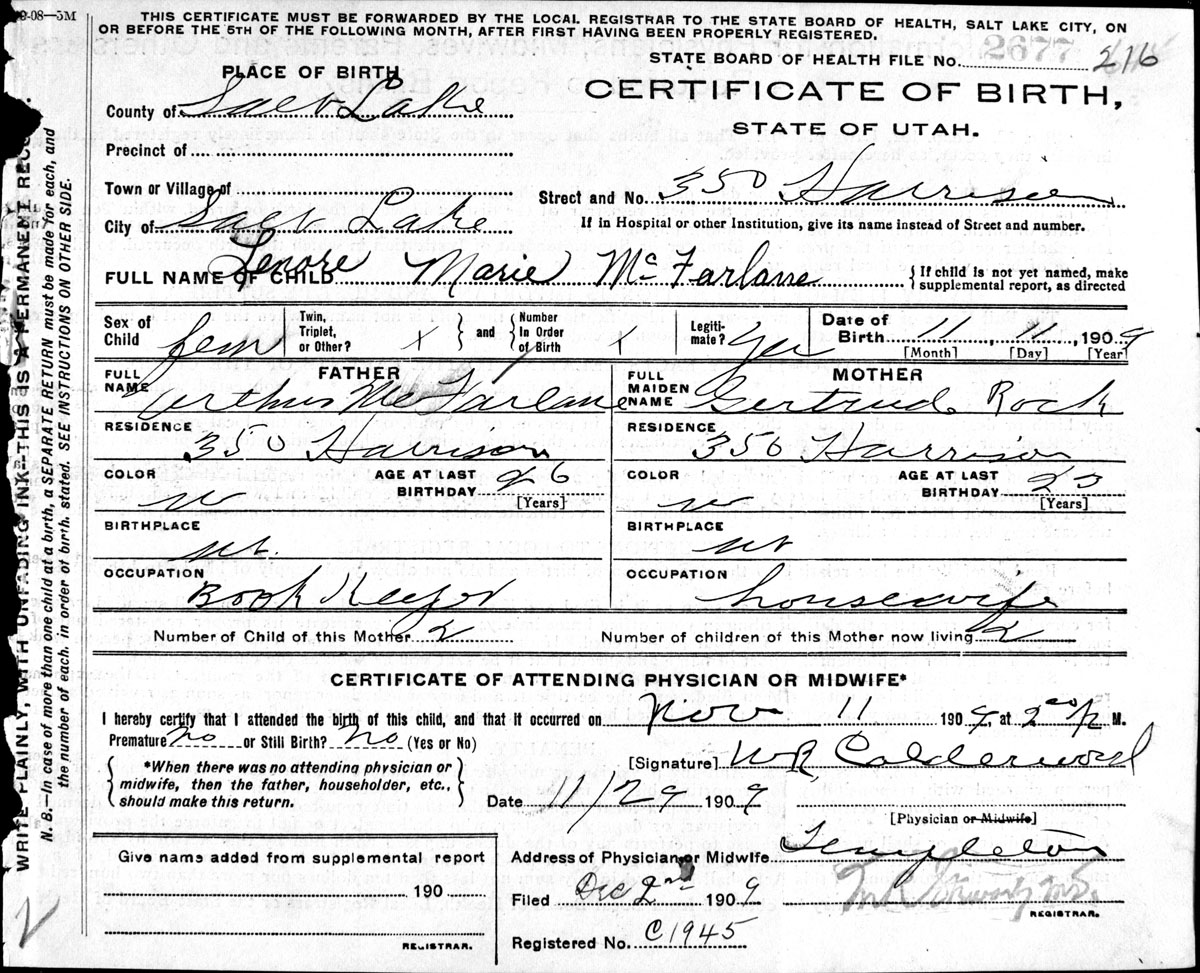 9-08—5M
THIS CERTIFICATE MUST BE FORWARDED BY THE LOCAL REGISTRAR TO THE STATE BOARD OF HEALTH, SALT LAKE CITY, ON
OR BEFORE THE 5TH OF THE FOLLOWING MONTH, AFTER FIRST HAVING BEEN PROPERLY REGISTERED.
STATE BOARD OF HEALTH FILE No. 2677 216
PLACE OF BIRTH
CERTIFICATE OF BIRTH,
STATE OF UTAH.
County of Salt Lake
Precinct of
Town or Village of
Street and No. 350 Harrison
City of Salt Lake
If in Hospital or other Institution, give its name instead of Street and number.
FULL NAME OF CHILD Lenore Marie McFarlane
{ If child is not yet named, make
supplemental report, as directed
Sex of Child fem
Twin, Triplet, or Other? X
and
Number In Order of Birth X
Legiti-mate? Yes
Date of Birth 11, 11, 1909
[Month] [Day] [Year]
FATHER
MOTHER
FULL NAME Arthur McFarlane
FULL MAIDEN NAME Gertrude Rock
RESIDENCE 350 Harrison
RESIDENCE 350 Harrison
COLOR w AGE AT LAST BIRTHDAY 26 [Years]
COLOR w AGE AT LAST BIRTHDAY 23 [Years]
BIRTHPLACE ut.
BIRTHPLACE ut
OCCUPATION Book Keeper
OCCUPATION housewife
Number of Child of this Mother 2
Number of children of this Mother now living 2
CERTIFICATE OF ATTENDING PHYSICIAN OR MIDWIFE*
I hereby certify that I attended the birth of this child, and that it occurred on Nov 11 1909, at 2 00 p M.
Premature No or Still Birth? No (Yes or No)
[Signature] WR Calderwood
*When there was no attending physician or
midwife, then the father, householder, etc.,
should make this return.
Date 11/29 1909
[Physician or Midwife]
Give name added from supplemental report
190
REGISTRAR.
Address of Physician or Midwife Templeton
Filed Dec 2nd 1909
REGISTRAR.
Registered No. C1945
WRITE PLAINLY, WITH UNFADING INK--THIS IS A PERMANENT RECO
N. B.—In case of more than one child at a birth, a SEPARATE RETURN must be made for each, and
the number of each, in order of birth, stated. SEE INSTRUCTIONS ON OTHER SIDE.